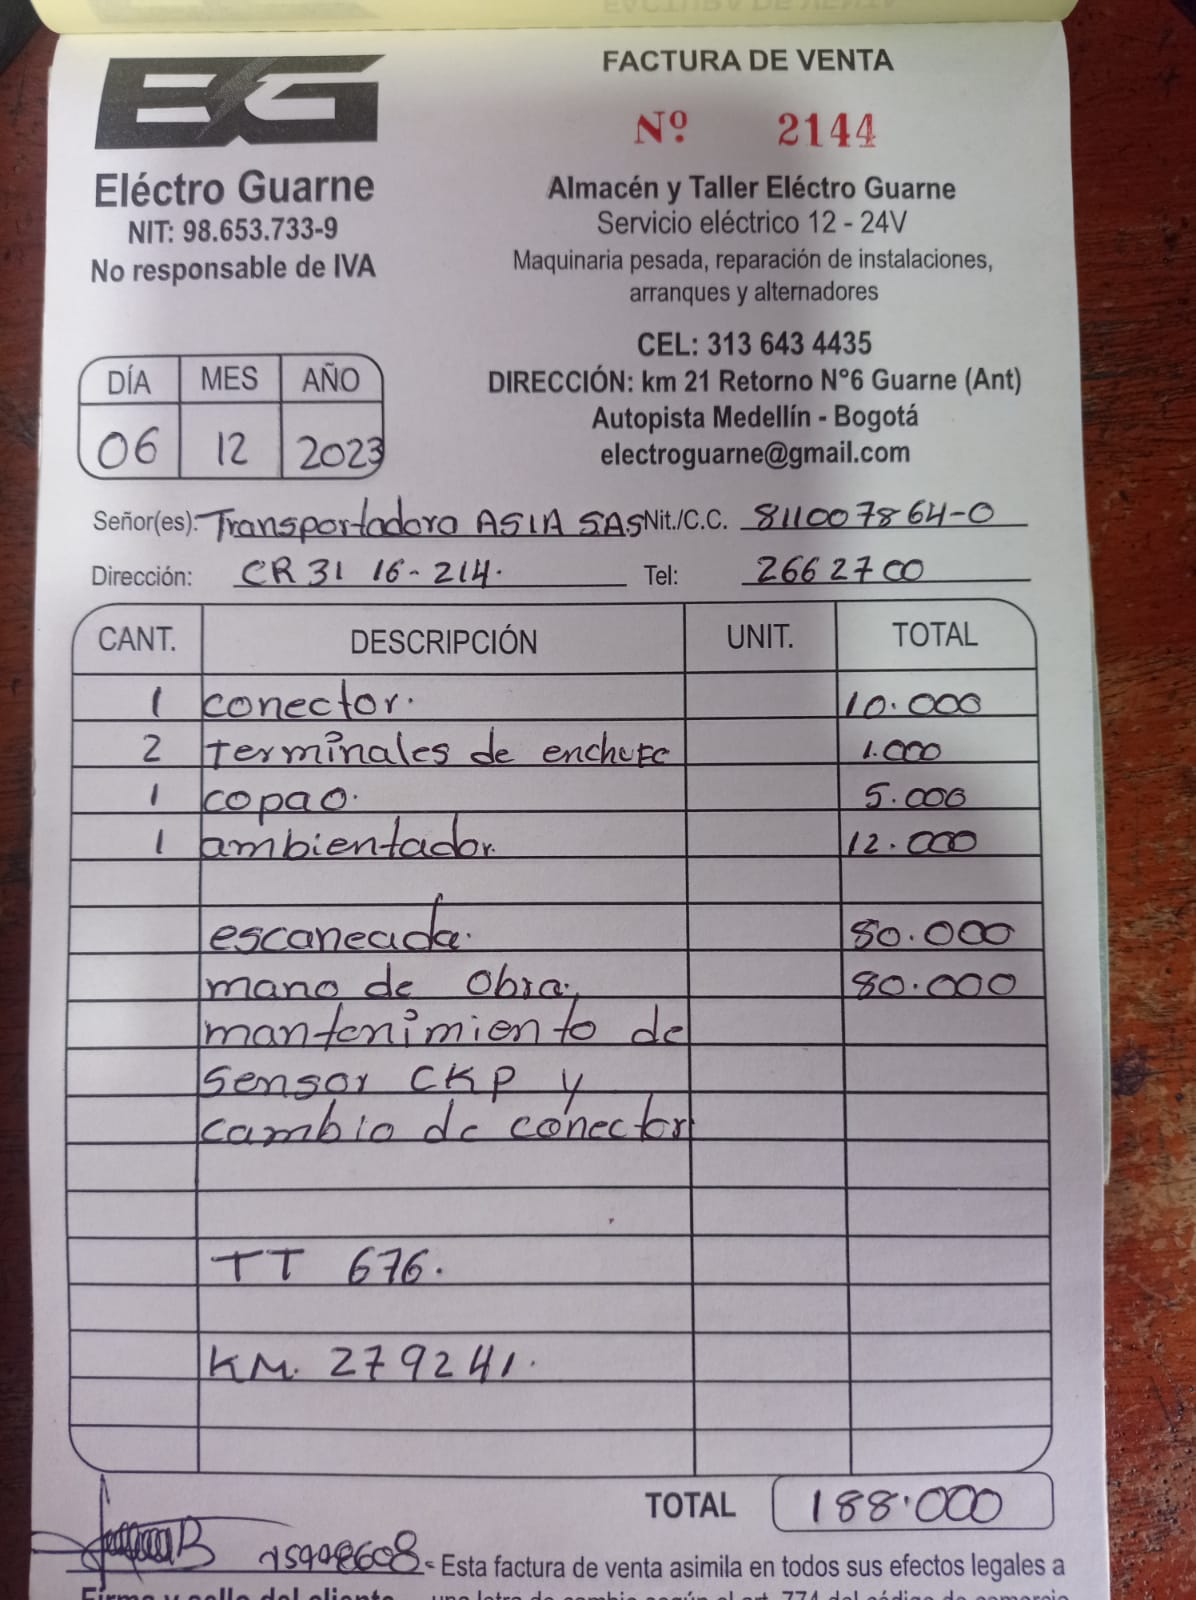 FACTURA DE VENTA
Nº 2144
EG
Eléctro Guarne
NIT: 98.653.733-9
No responsable de IVA
Almacén y Taller Eléctro Guarne
Servicio eléctrico 12 - 24V
Maquinaria pesada, reparación de instalaciones,
arranques y alternadores
CEL: 313 643 4435
DIRECCIÓN: km 21 Retorno N°6 Guarne (Ant)
Autopista Medellín - Bogotá
electroguarne@gmail.com
DÍA MES AÑO
06 12 2023
Señor(es): Transportadora ASIA SAS Nit./C.C. 811007864-0
Dirección: CR 31 16-214. Tel: 2662700
CANT. DESCRIPCIÓN UNIT. TOTAL
1 conector. 10.000
2 terminales de enchufe 1.000
1 copao. 5.000
1 ambientador. 12.000
escaneada. 80.000
mano de Obra, 80.000
mantenimiento de
sensor CKP y
cambio de conector
TT 676.
KM. 279241.
TOTAL 188.000
Esta factura de venta asimila en todos sus efectos legales a
Firma y sello del cliente una letra de cambio según el art. 774 del código de comercio